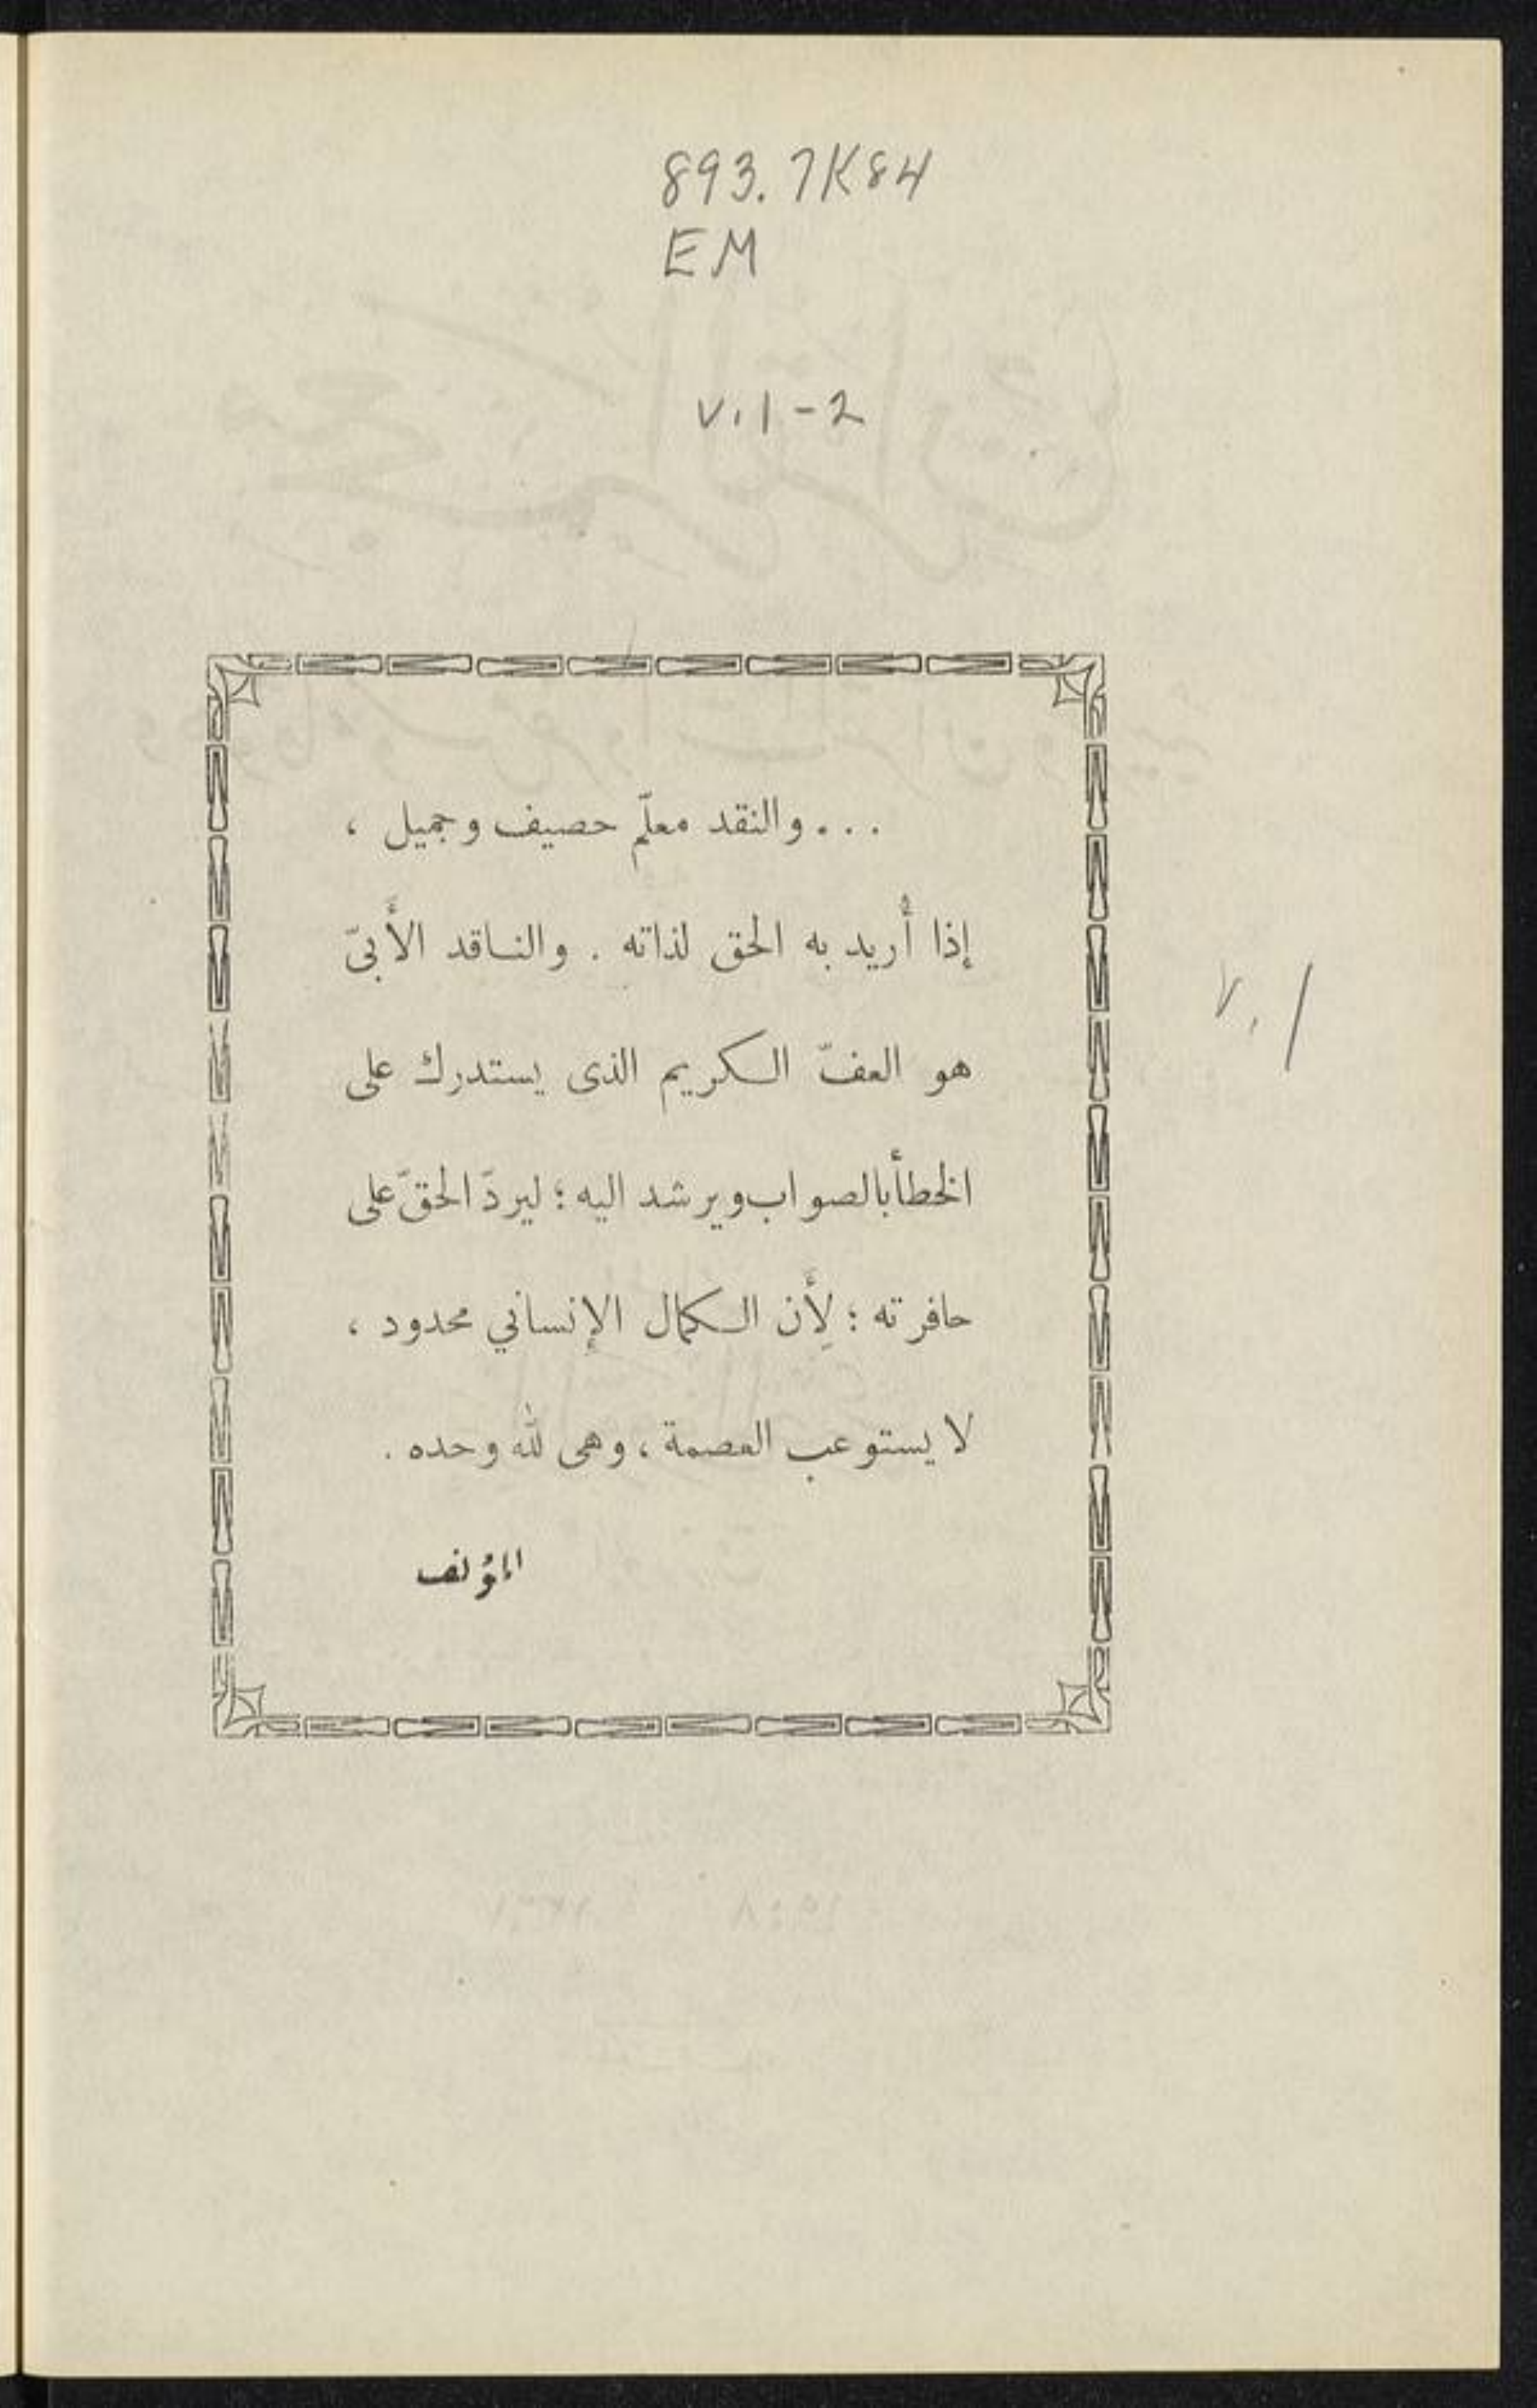 893.7K84
EM
v.1-2
... والنقد معلّم حصيف وجميل ،
إذا أُريد به الحق لذاته . والناقد الأَبىّ
هو العفّ الكريم الذى يستدرك على
v.1
الخطأ بالصواب ويرشد اليه ؛ ليردّ الحقّ على
حافرته ؛ لِأَن الكمال الإنساني محدود ،
لا يستوعب العصمة ، وهى لله وحده .
المؤلف